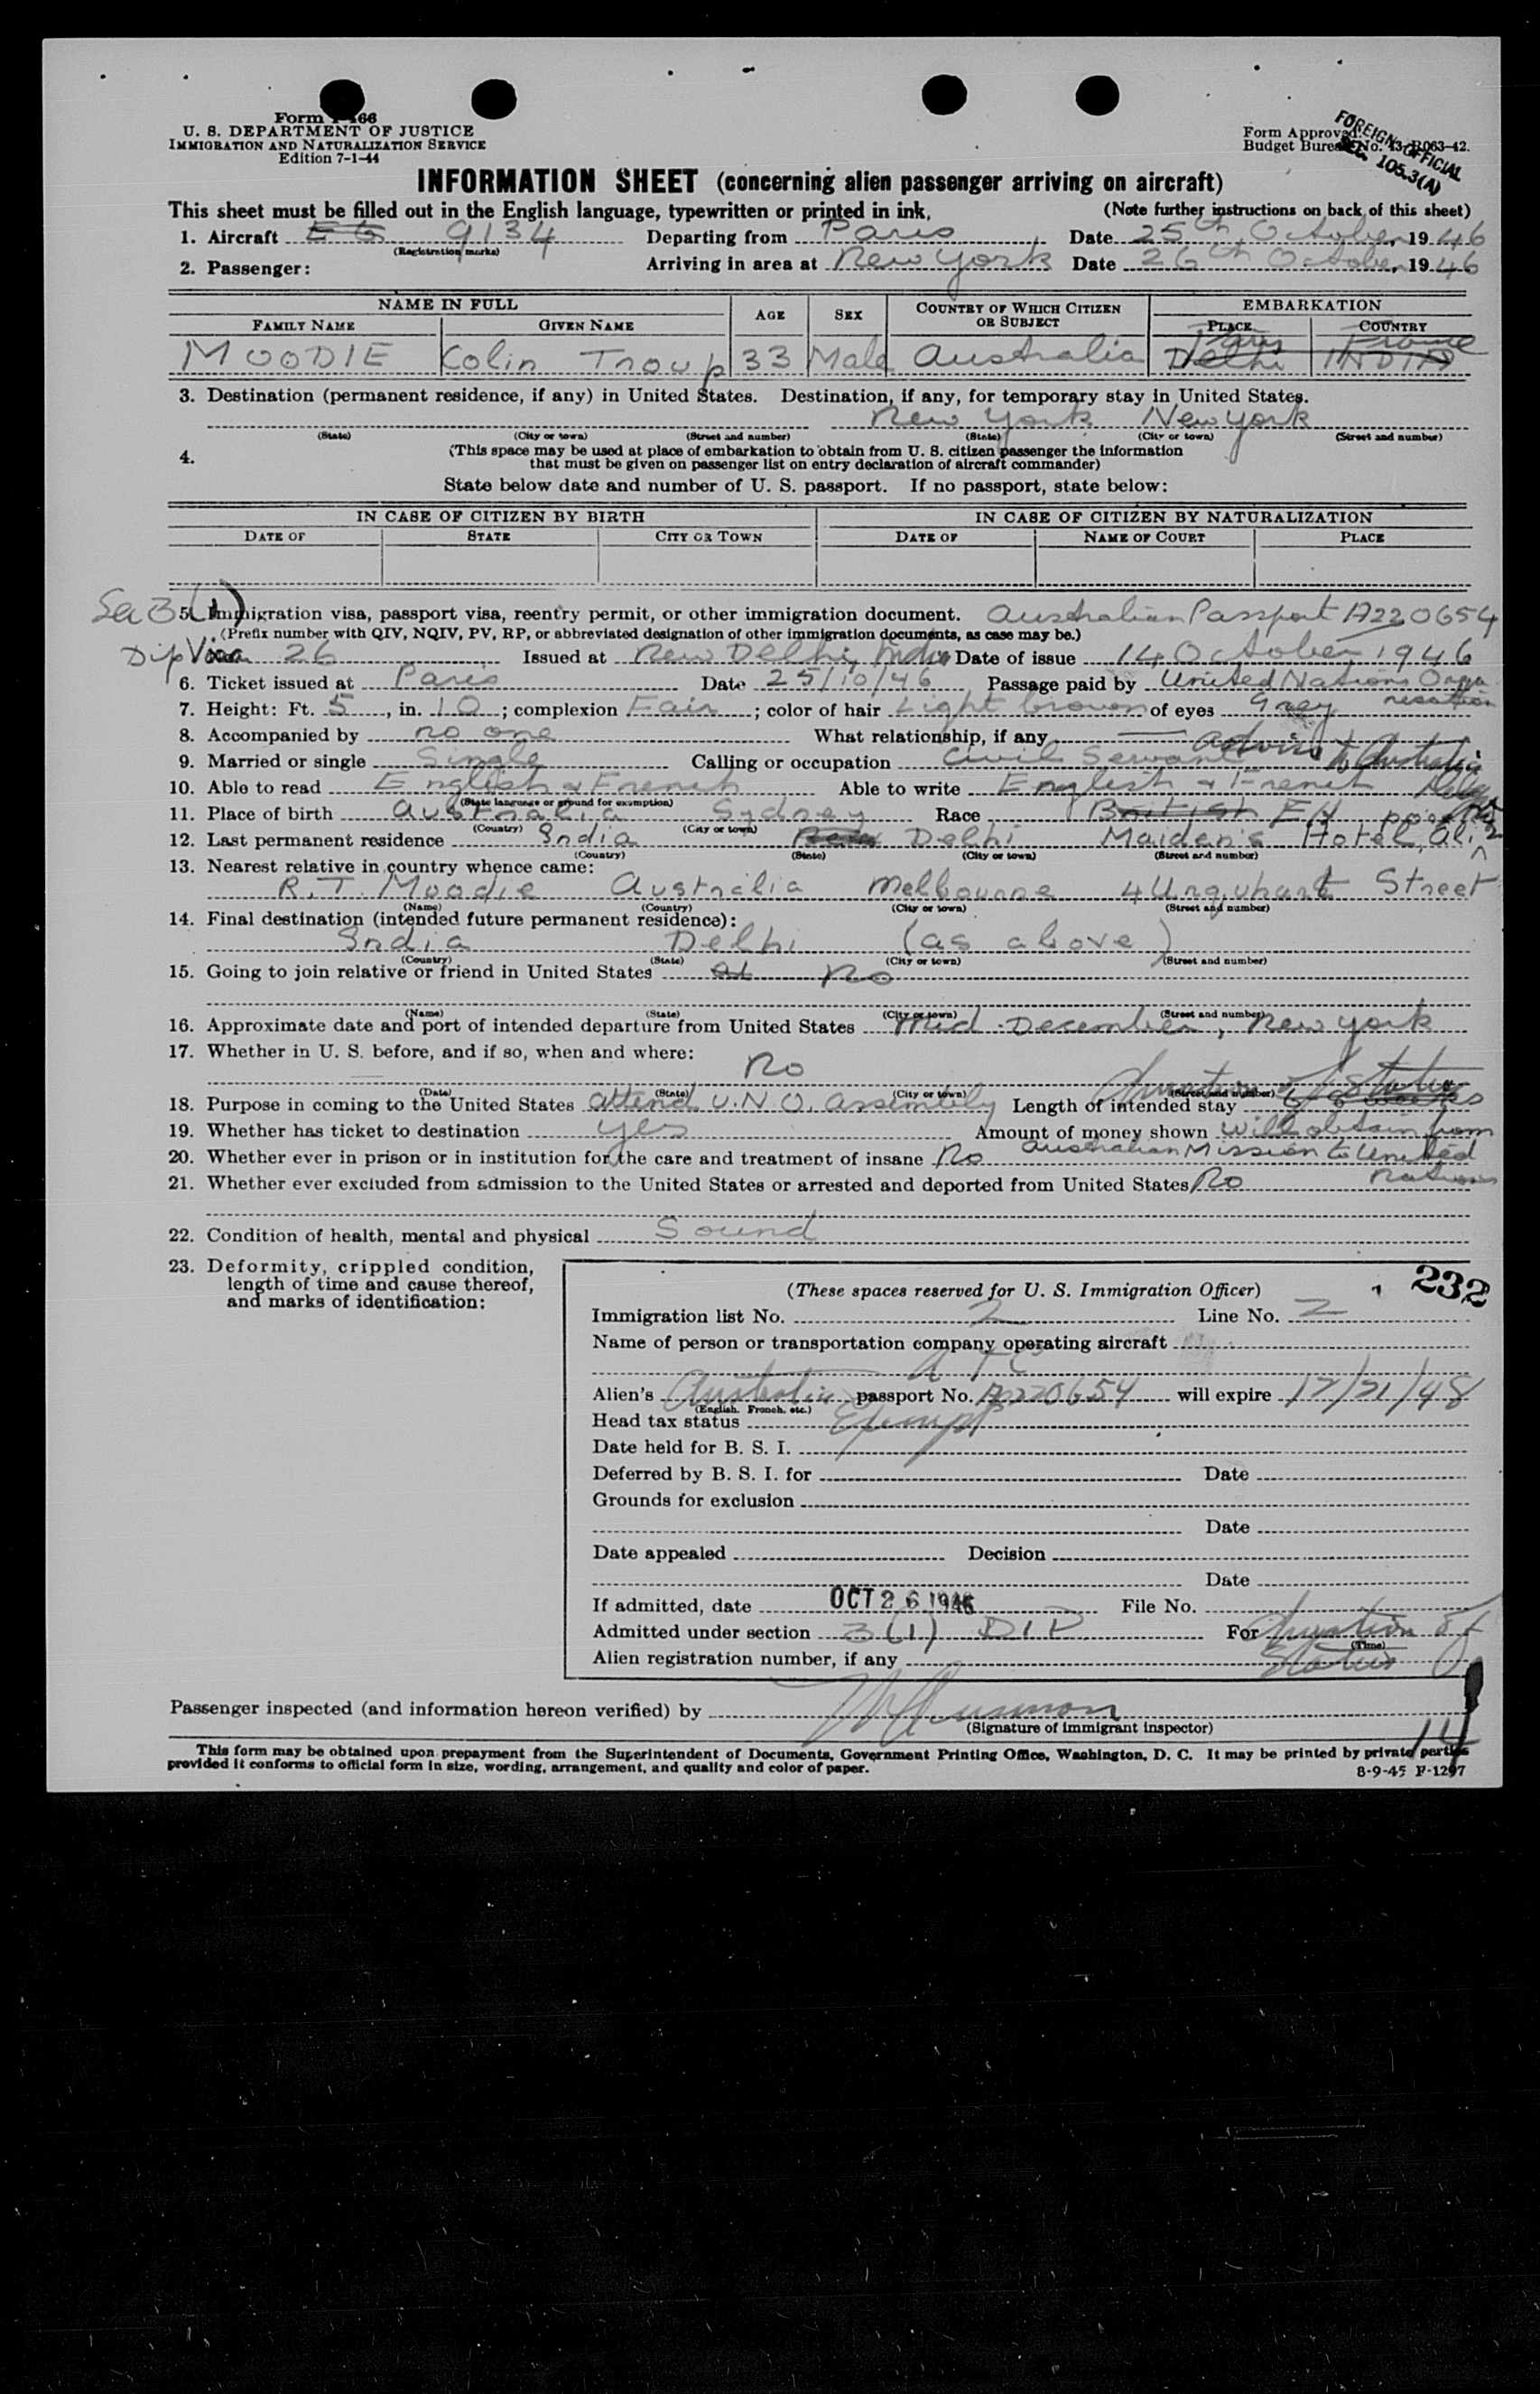 Form I-466
U. S. DEPARTMENT OF JUSTICE
IMMIGRATION AND NATURALIZATION SERVICE
Edition 7-1-44
Form Approved.
Budget Bureau No. 43-R063-42.
FOREIGN OFFICIAL
SEC. 105.3(A)
INFORMATION SHEET (concerning alien passenger arriving on aircraft)
This sheet must be filled out in the English language, typewritten or printed in ink. (Note further instructions on back of this sheet)
1. Aircraft EG 9134 Departing from Paris Date 25th October, 1946
(Registration marks)
2. Passenger: Arriving in area at New York Date 26th October, 1946
NAME IN FULL AGE SEX COUNTRY OF WHICH CITIZEN OR SUBJECT EMBARKATION
FAMILY NAME GIVEN NAME PLACE COUNTRY
Paris France
MOODIE Colin Troup 33 Male Australia Delhi INDIA
3. Destination (permanent residence, if any) in United States. Destination, if any, for temporary stay in United States.
New York New York
(State) (City or town) (Street and number) (State) (City or town) (Street and number)
4. (This space may be used at place of embarkation to obtain from U. S. citizen passenger the information
that must be given on passenger list on entry declaration of aircraft commander)
State below date and number of U. S. passport. If no passport, state below:
IN CASE OF CITIZEN BY BIRTH IN CASE OF CITIZEN BY NATURALIZATION
DATE OF STATE CITY OR TOWN DATE OF NAME OF COURT PLACE
Sec 3(1) 5. Immigration visa, passport visa, reentry permit, or other immigration document. Australian Passport A220654
(Prefix number with QIV, NQIV, PV, RP, or abbreviated designation of other immigration documents, as case may be.)
Dip Visa 26 Issued at New Delhi, India Date of issue 14 October 1946
6. Ticket issued at Paris Date 25/10/46 Passage paid by United Nations Organisation
7. Height: Ft. 5, in. 10; complexion Fair; color of hair Light brown of eyes Grey
8. Accompanied by no one What relationship, if any —
9. Married or single Single Calling or occupation Civil Servant Advisor to Australia
10. Able to read English & French Able to write English & French
(State language or ground for exemption)
11. Place of birth Australia Sydney Race British EN
(Country) (City or town)
12. Last permanent residence India New Delhi Maiden's Hotel,
(Country) (State) (City or town) (Street and number)
13. Nearest relative in country whence came:
R. T. Moodie Australia Melbourne 4 Urquhart Street
(Name) (Country) (City or town) (Street and number)
14. Final destination (intended future permanent residence):
India Delhi (as above)
(Country) (State) (City or town) (Street and number)
15. Going to join relative or friend in United States No
(Name) (State) (City or town) (Street and number)
16. Approximate date and port of intended departure from United States Mid-December, New York
17. Whether in U. S. before, and if so, when and where:
No
(Date) (State) (City or town) (Street and number)
Duration of Status
18. Purpose in coming to the United States attend U.N.O. assembly Length of intended stay 6-8 weeks
19. Whether has ticket to destination yes Amount of money shown will obtain from
20. Whether ever in prison or in institution for the care and treatment of insane No Australian Mission to United
21. Whether ever excluded from admission to the United States or arrested and deported from United States No Nations
22. Condition of health, mental and physical Sound
23. Deformity, crippled condition,
length of time and cause thereof,
and marks of identification:
(These spaces reserved for U. S. Immigration Officer) 232
Immigration list No. 2 Line No. 2
Name of person or transportation company operating aircraft
A T C
Alien's Australia passport No. A220654 will expire 12/21/48
(English, French, etc.)
Head tax status Exempt
Date held for B. S. I.
Deferred by B. S. I. for Date
Grounds for exclusion
Date
Date appealed Decision
Date
If admitted, date OCT 26 1946 File No.
Admitted under section 3(1) DIP For Duration of
(Time)
Alien registration number, if any Status
Passenger inspected (and information hereon verified) by
(Signature of immigrant inspector)
14
This form may be obtained upon prepayment from the Superintendent of Documents, Government Printing Office, Washington, D. C. It may be printed by private parties
provided it conforms to official form in size, wording, arrangement, and quality and color of paper.
8-9-45 F-1297